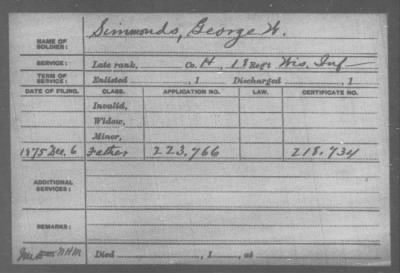 NAME OF SOLDIER: Simmonds, George W.
SERVICE: Late rank, Co. H, 18 Reg't Wis. Inf
TERM OF SERVICE: Enlisted , 1 Discharged , 1
DATE OF FILING. CLASS. APPLICATION NO. LAW. CERTIFICATE NO.
Invalid,
Widow,
Minor,
1875 Dec. 6 Father 223,766 218,734
ADDITIONAL SERVICES:
REMARKS:
Died , 1 , at